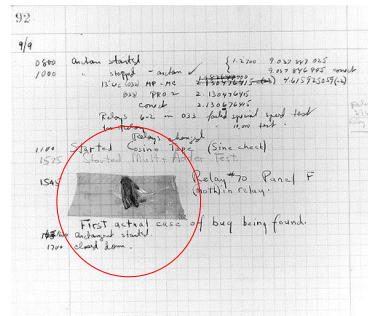 92
9/9
0800 Antan started
1000 " stopped - antan ✓ { 1.2700 9.037 847 025
9.037 846 995 correct
13"uc (032) MP-MC 4.615925059(-2)
(033) PRO 2 2.130476415
correct 2.130676415
Relays 6-2 in 033 failed special speed test
in Relay 10,000 test.
Relays changed
1100 Started Cosine Tape (Sine check)
1525 Started Multi Adder Test.
1545 Relay #70 Panel F
(moth) in relay.
First actual case of bug being found.
antangent started.
1700 closed down.